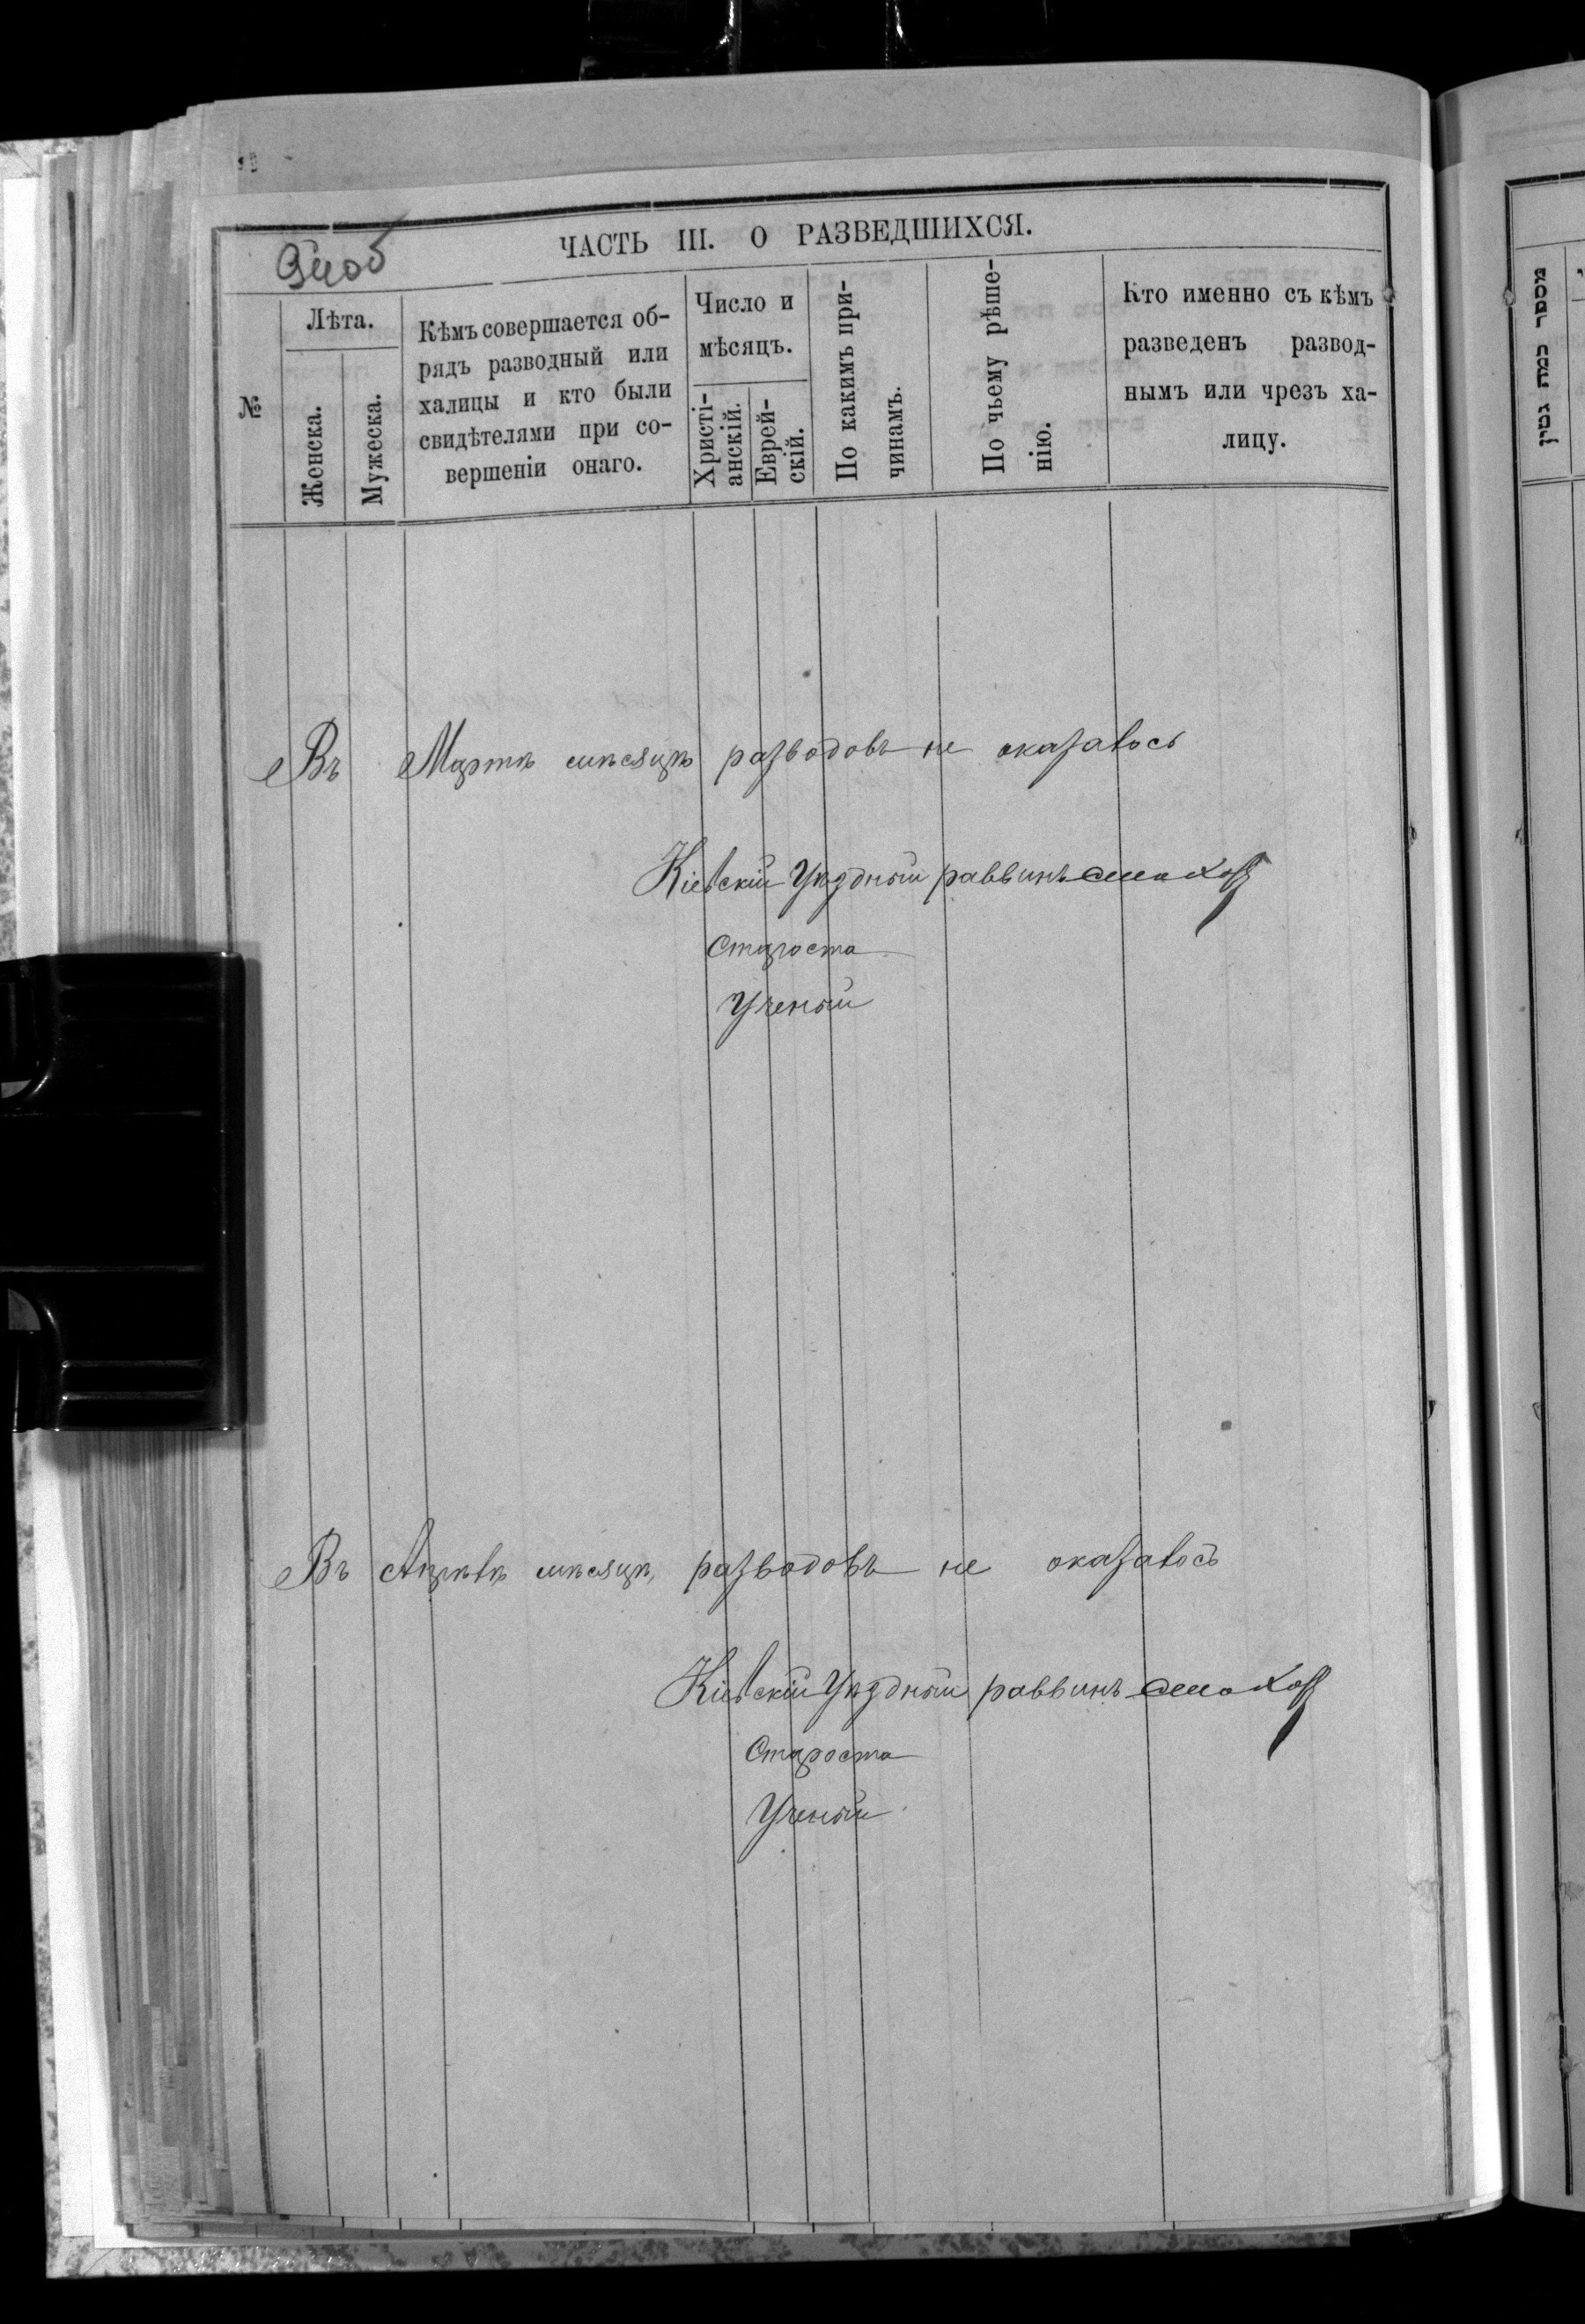 ЧАСТЬ III. О РАЗВЕДШИХСЯ.
№
Лѣта.
Женска.
Мужеска.
Кѣмъ совершается об-
рядъ разводный или
халицы и кто были
свидѣтелями при со-
вершеніи онаго.
Число и
мѣсяцъ.
Христі-
анскій.
Еврей-
скій.
По какимъ при-
чинамъ.
По чьему рѣше-
нію.
Кто именно съ кѣмъ
разведенъ развод-
нымъ или чрезъ ха-
лицу.
Въ Мартѣ мѣсяцѣ разводовъ не оказалось
Кіевскій Уѣздный раввинъ
Староста
Ученый
Въ Апрѣлѣ мѣсяцѣ, разводовъ не оказалось
Кіевскій Уѣздный раввинъ
Староста
Ученый
מספר כמה גטין